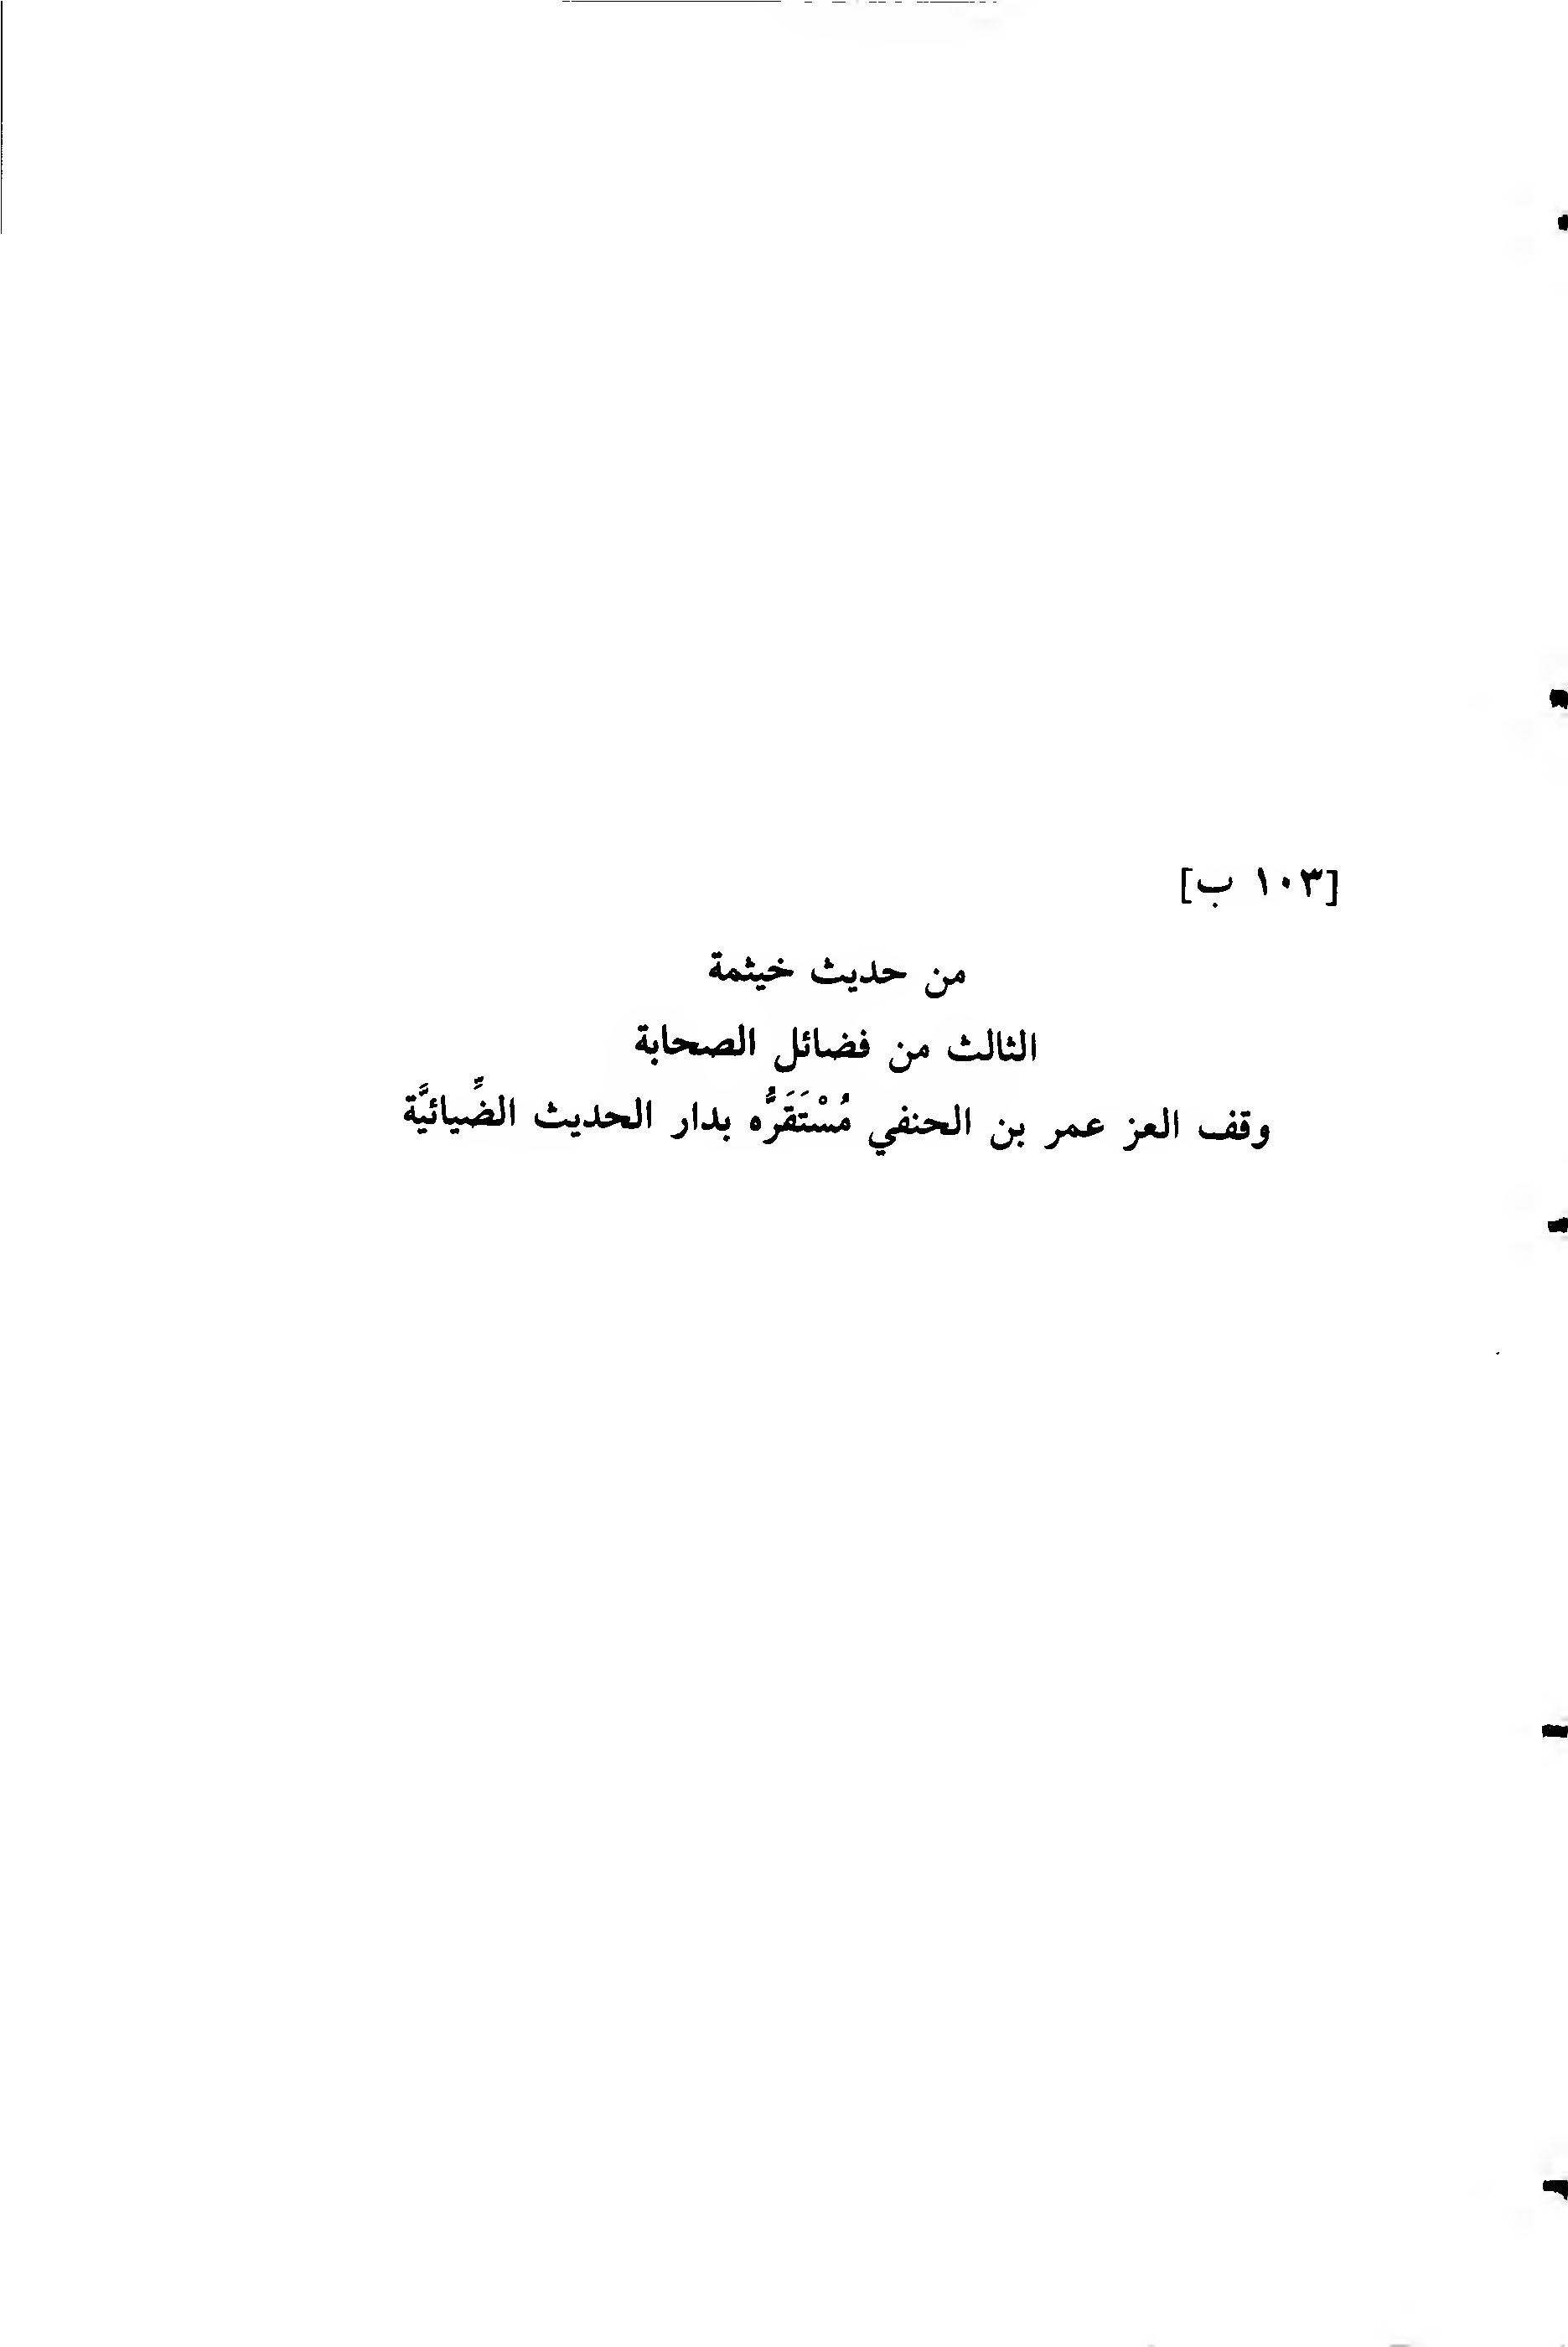 [١٠٣ ب]
من حديث خيثمة
الثالث من فضائل الصحابة
وقف العز عمر بن الحنفي مُسْتَقَرُّه بدار الحديث الضِّيائيَّة